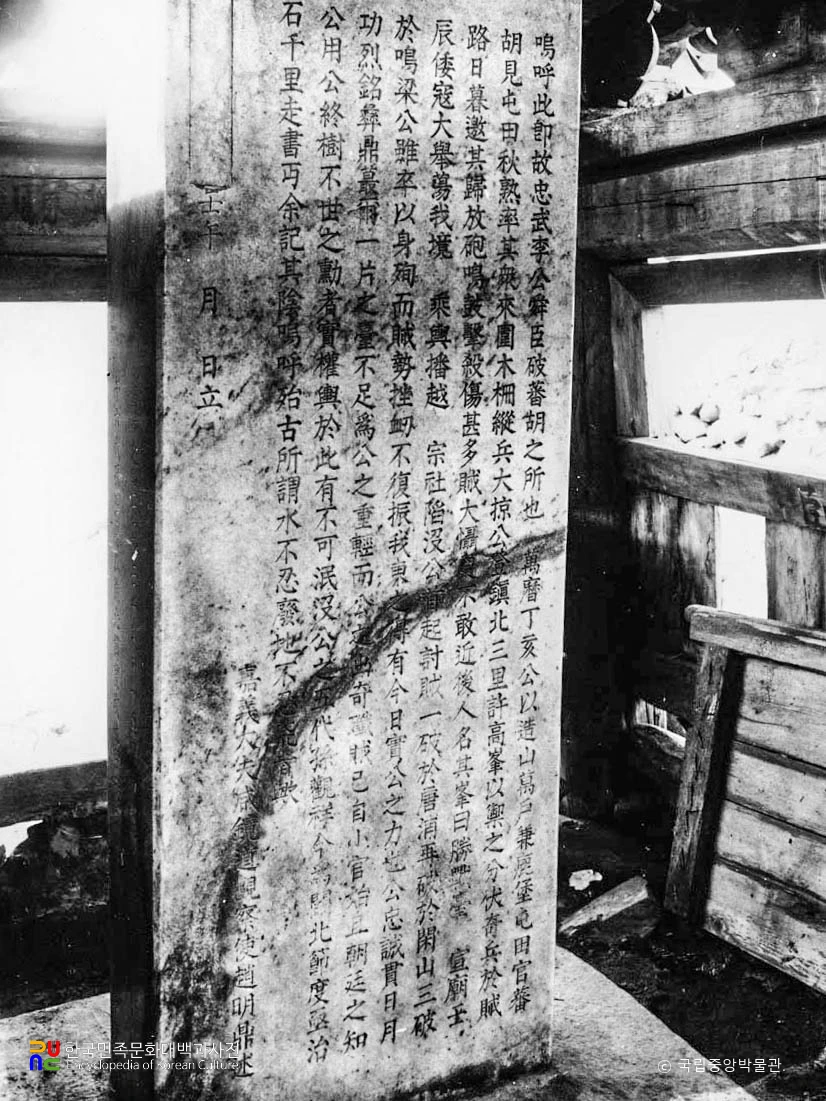 嗚呼此卽故忠武李公舜臣破蕃胡之所也 萬曆丁亥公以造山萬戶兼鹿堡屯田官蕃
胡見屯田秋熟率其衆來圍木柵縱兵大掠公登鎭北三里許高峯以禦之分伏奇兵於賊
路日暮邀其歸放砲鳴鼓擊殺傷甚多賊大懾不敢近後人名其峯曰勝戰臺 宣廟壬
辰倭寇大擧蕩我境 乘輿播越 宗社陷沒公奮起討賊一破於唐浦再破於閑山三破
於鳴梁公雖卒以身殉而賊勢挫衄不復振我東之得有今日實公之力也公忠誠貫日月
功烈銘彝鼎蕞爾一片之臺不足爲公之重輕而公之出奇殲賊已自小官始且朝廷之知
公用公終樹不世之勳者實權輿於此有不可泯沒公之五代孫觀祥今爲關北節度亟治
石千里走書丐余記其陰嗚呼殆古所謂水不忍廢地不忍荒者歟
嘉義大夫咸鏡道觀察使趙明鼎述
壬午 月 日立
한국민족문화대백과사전
Encyclopedia of Korean Culture
© 국립중앙박물관